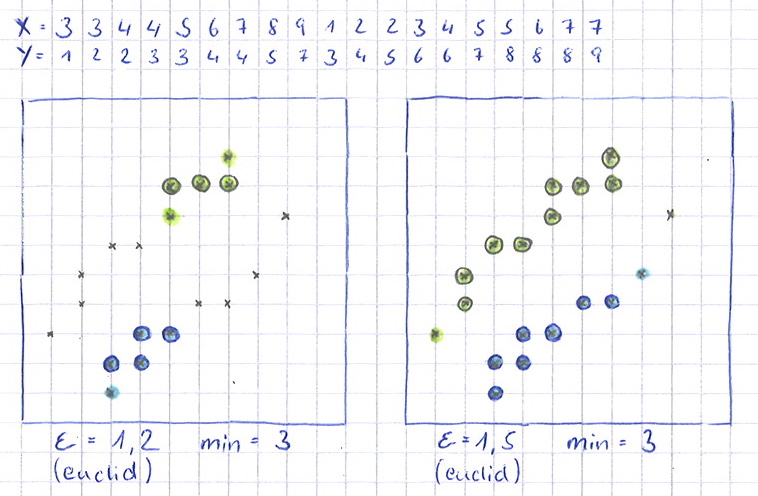 X = 3 3 4 4 5 6 7 8 9 1 2 2 3 4 5 5 6 7 7
Y = 1 2 2 3 3 4 4 5 7 3 4 5 6 6 7 8 8 8 9
ε = 1,2 min = 3
(euclid)
ε = 1,5 min = 3
(euclid)